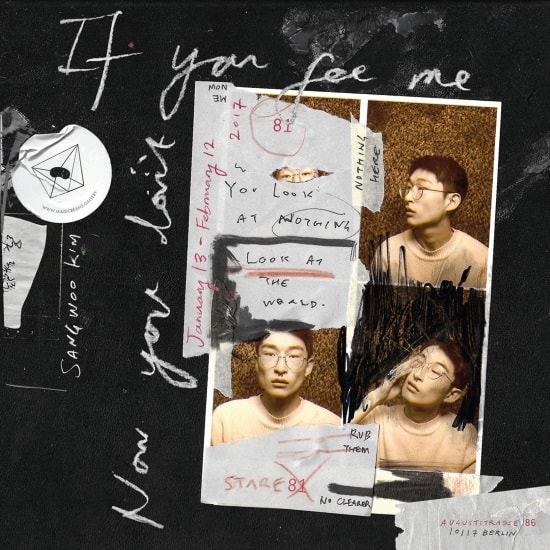 If you see me
Now you don't
SANG WOO KIM
MON
ME
January 13 - February 12
2017
81
YOU LOOK
AT NOTHING
LOOK AT
THE
WORLD.
NOTHING
HERE
RUB
THEM
STARE
81
NO CLEARER
AUGUSTSTRASSE 86
10117 BERLIN